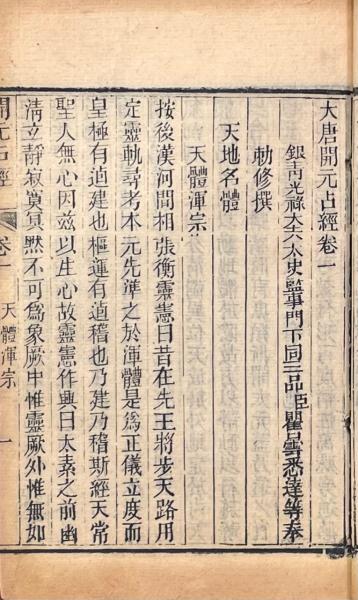 大唐開元占經卷一
銀靑光祿大夫太史監事門下同三品臣瞿曇悉達等奉
勅修撰
天地名體
天體渾宗
按後漢河間相張衡靈憲曰昔在先王將步天路用
定靈軌尋考本元先準之於渾體是爲正儀立度而
皇極有逌建也樞運有逌稽也乃建乃稽斯經天常
聖人無心因玆以生心故靈憲作興曰太素之前幽
淸立靜寂寞冥黙不可爲象厥中惟靈厥外惟無如
開元占經 卷一 天體渾宗 一